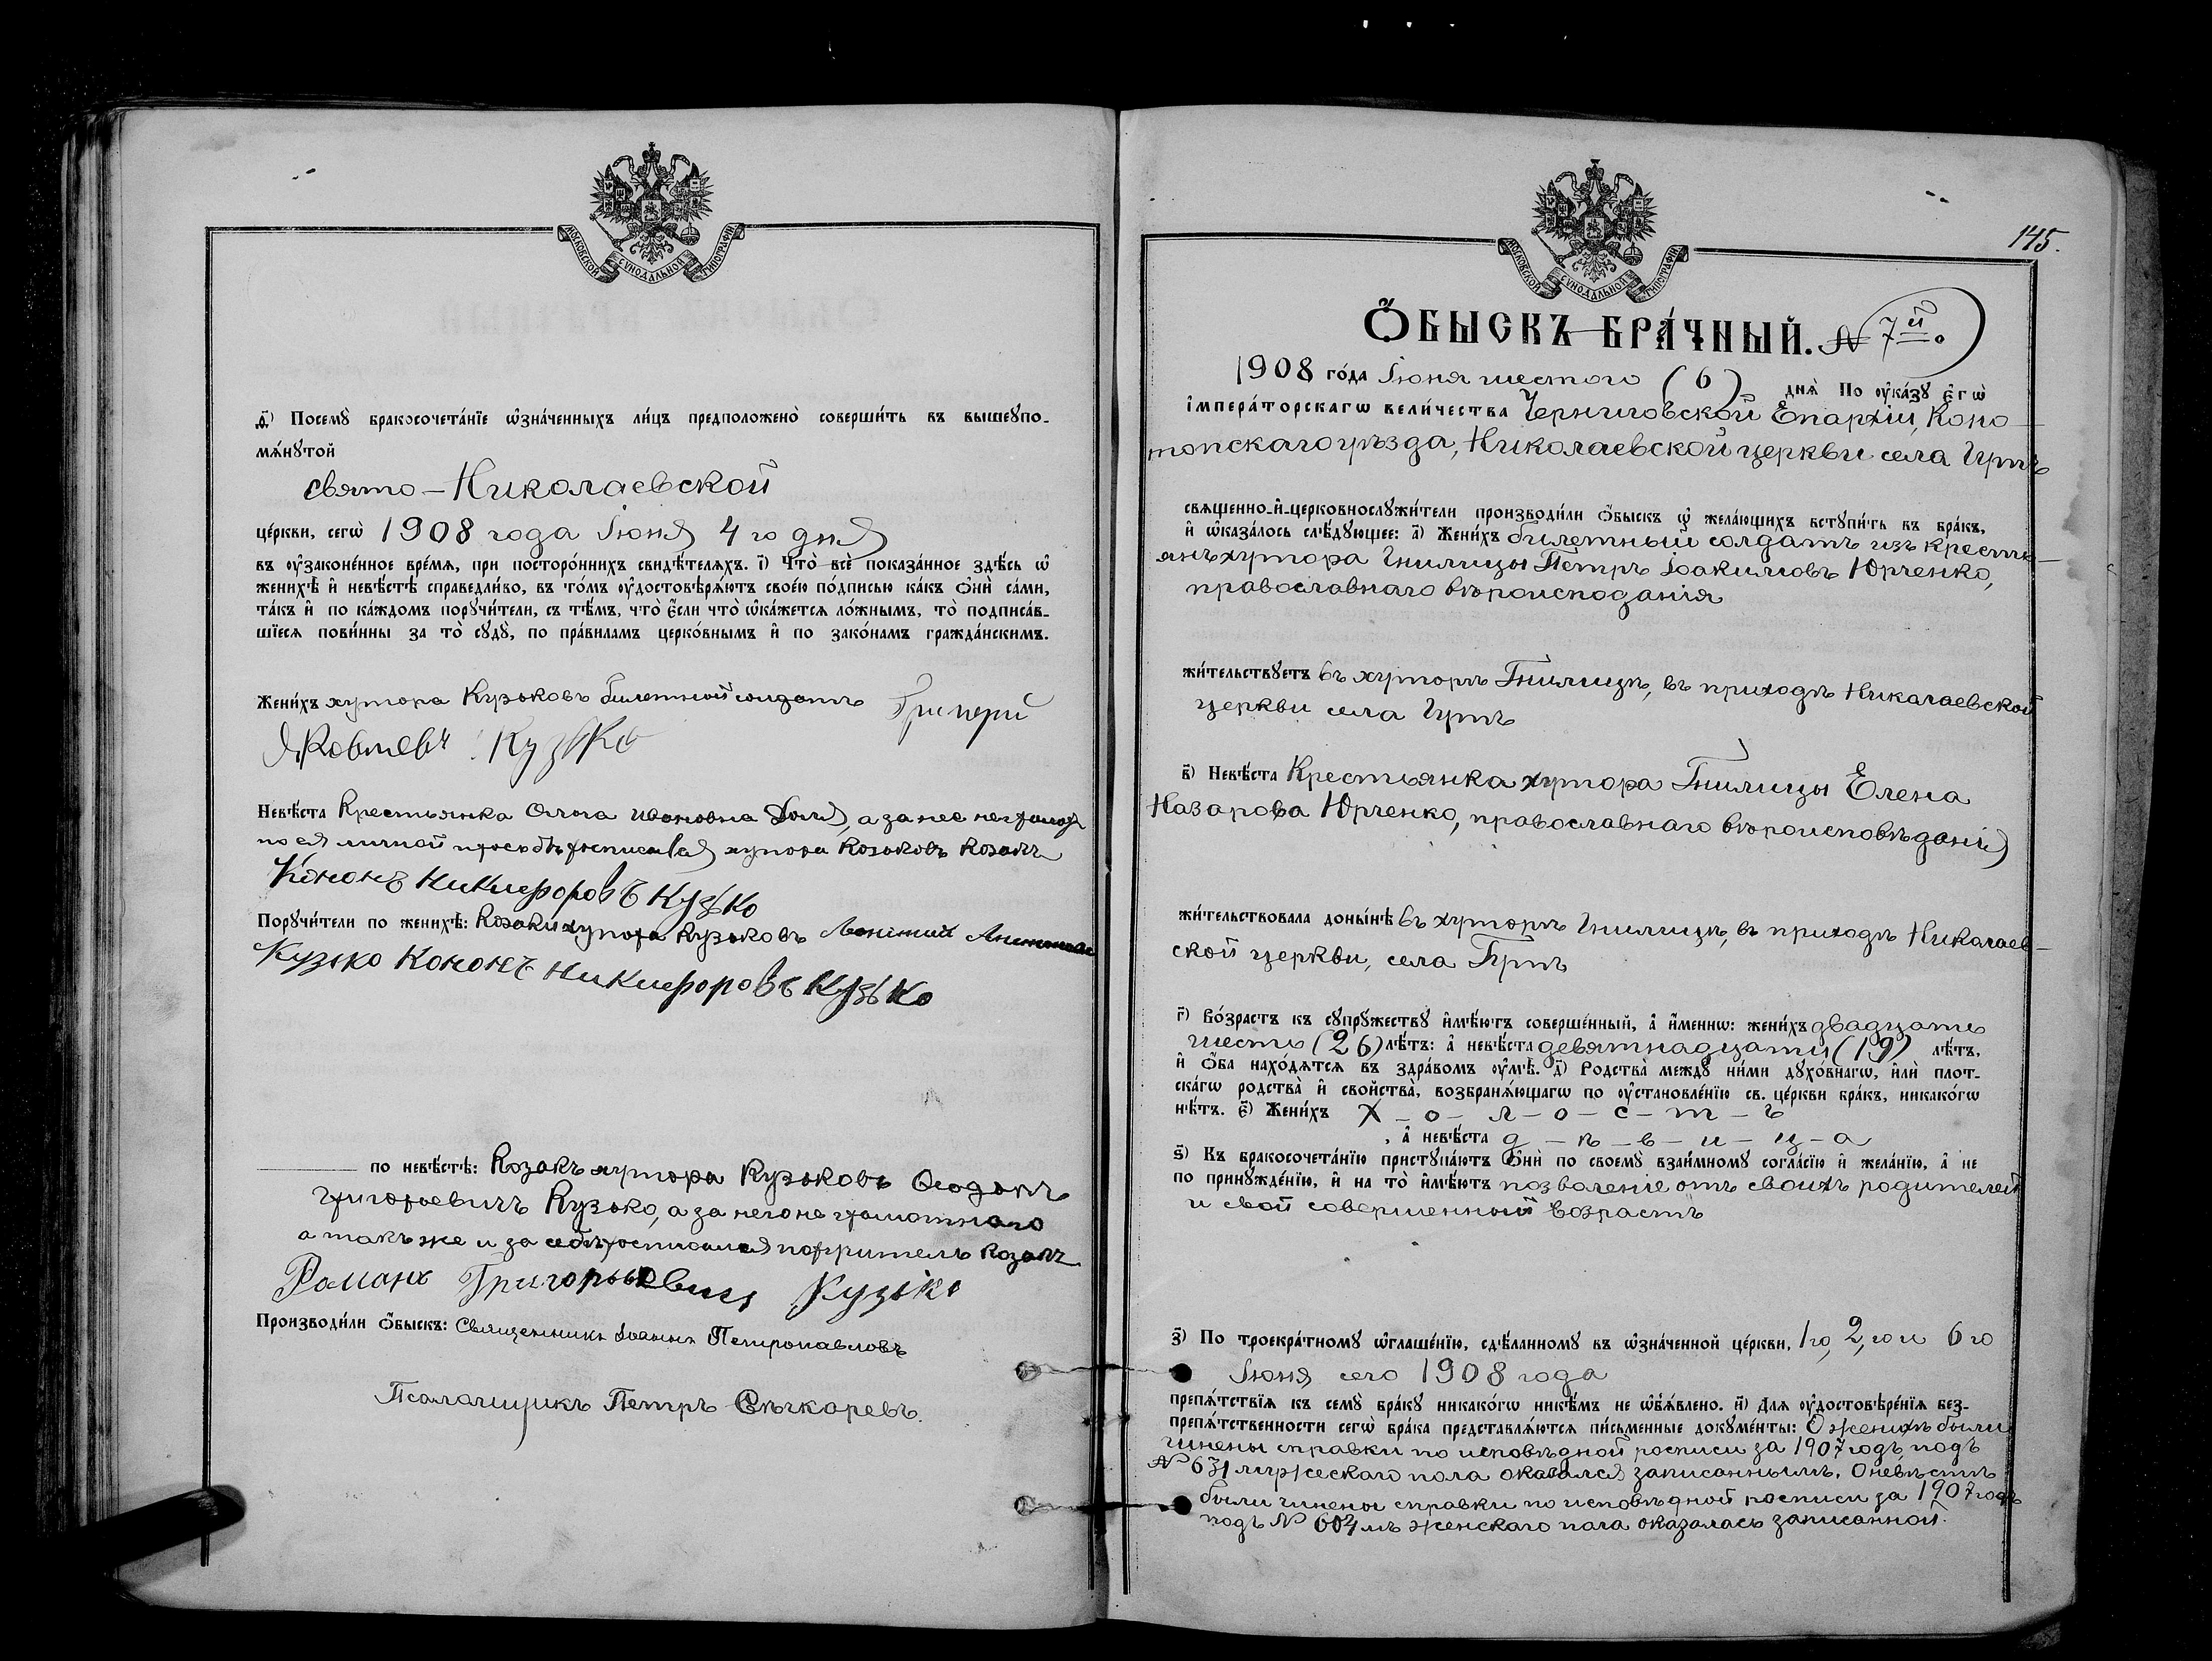 МОСКОВСКОЙ СѴНОДАЛЬНОЙ ТИПОГРАФІИ
Посемꙋ̀ бракосочета́нїе ѡ҆зна́ченныхъ ли́цъ предположено̀ соверши́ть въ вышеꙋпо-
мѧ́нꙋтой
свято-Николаевской
це́ркви, сегѡ̀ 1908 года Іюня 4 го дня
въ ᲂу҆зако́ненное вре́мѧ, при посторо́ннихъ свидѣ́телѧхъ. і҃) Что̀ всѐ пока́занное здѣ́сь ѡ҆
женихѣ̀ и҆ невѣ́стѣ справедли́во, въ то́мъ ᲂу҆достовѣрѧ́ютъ свое́ю по́дписью ка́къ Ѻ҆нѝ са́ми,
та́къ и҆ по ка́ждомъ порꙋчи́тели, съ тѣ́мъ, что̀ є҆́сли что̀ ѡ҆ка́жетсѧ ло́жнымъ, то̀ подписа́в-
шїесѧ пови́нны за то̀ сꙋдꙋ̀, по пра́виламъ церко́внымъ и҆ по зако́намъ гражда́нскимъ.
Жени́хъ хутора Кузьковъ билетной солдатъ Григорій
Яковлевъ Кузько
Невѣ́ста Крестьянка Ольга Ивановна, а за нее неграмот
по ея личной просьбѣ росписался хутора Козаковъ Козакъ
Кононъ Никифоровъ Кузько
Порꙋчи́тели по женихѣ̀: Козаки хутора Кузьковъ
Кузько Кононъ Никифоровъ Кузько
по невѣ́стѣ: Козакъ хутора Кузьковъ
Григорьевичъ Кузько, а за него не грамотнаго
а такъ же и за себя росписался поручитель Козакъ
Романъ Григорьевичъ Кузько
Производи́ли Ѻ҆́быскъ: Священникъ Іоаннъ Петропавловъ
Псаломщикъ Петръ Сѣчкаревъ.
МОСКОВСКОЙ СѴНОДАЛЬНОЙ ТИПОГРАФІИ
145.
Ѻ҆БЫСКЪ БРА́ЧНЫЙ. № 7й
1908 го́да Іюня шестого (6) днѧ̀ По ᲂу҆ка́зꙋ Є҆гѡ̀
і҆мпера́торскагѡ вели́чества Черниговской Епархіи, Коно-
топскаго уѣзда, Николаевской церкви села Гутъ
свѧщенно-и҆-церковнослꙋжи́тели производи́ли Ѻ҆́быскъ ѡ҆ жела́ющихъ встꙋпи́ть въ бра́къ,
и҆ ѡ҆каза́лось слѣ́дꙋющее: а҃) Жени́хъ билетный солдатъ изъ кресть-
янъ хутора Гнилицы Петръ Іоакимовъ Юрченко,
православнаго вѣроисподанія
жи́тельствꙋетъ въ хуторѣ Гнилицѣ, въ приходѣ Николаевской
церкви села Гутъ
в҃) Невѣ́ста Крестьянка хутора Гнилицы Елена
Назарова Юрченко, православнаго вѣроисповѣданія
жи́тельствовала доны́нѣ въ хуторѣ Гнилицѣ, въ приходѣ Николаев-
ской церкви, села Гутъ
г҃) Во́зрастъ къ сꙋпрꙋ́жествꙋ и҆мѣ́ютъ соверше́нный, а҆ и҆́менно: жени́хъ двадцать
шесть (26) лѣ́тъ: а҆ невѣ́ста девятнадцати (19) лѣ́тъ,
и҆ Ѻ҆́ба нахо́дѧтсѧ въ здра́вомъ ᲂу҆мѣ̀. д҃) Родства̀ междꙋ̀ ни́ми дꙋхо́внагѡ, и҆лѝ плот-
ска́гѡ родства̀ и҆ сво́йства̀, возбранѧ́ющагѡ по ᲂу҆становле́нїю св. це́ркви бра́къ, никако́гѡ
нѣ́тъ. є҃) Жени́хъ х-о-л-о-с-т-ъ
, а҆ невѣ́ста д-ѣ-в-и-ц-а
ѕ҃) Къ бракосочета́нїю пристꙋпа́ютъ Ѻ҆нѝ по своемꙋ̀ взаи́мномꙋ согла́сїю и҆ жела́нїю, а҆ не
по принꙋжде́нїю, и҆ на то̀ и҆мѣ́ютъ позволеніе отъ своихъ родителей
и свой совершенный возрастъ
з҃) По троекра́тномꙋ ѡ҆глаше́нїю, сдѣ́ланномꙋ въ ѡ҆зна́ченной це́ркви, 1го, 2,го и 6го
Іюня сего 1908 года
препѧ́тствїѧ къ семꙋ̀ бра́кꙋ никако́гѡ никѣ́мъ не ѡ҆б̾ѧ́влено. и҃) Длѧ ᲂу҆достовѣре́нїѧ без-
препѧ́тственности сегѡ̀ бра́ка представлѧ́ютсѧ пи́сьменные докꙋме́нты: О женихѣ были
чинены справки по исповѣдной росписи за 1907 годъ, подъ
№ 631 мужескаго пола оказался записаннымъ. О невѣстѣ
были чинены справки по исповѣдной росписи за 1907 годъ
подъ № 604мъ женскаго пола оказалась записанной.